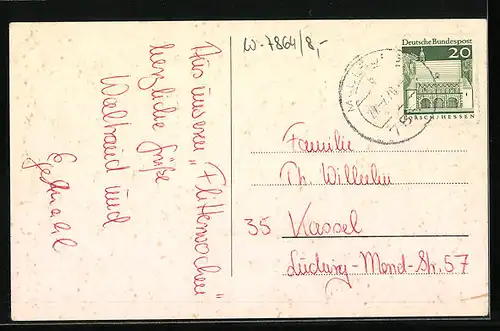 W-7864/8,-
Aus unseren „Flitterwochen"
herzliche Grüße
Waltraud und
Gesmahl
Deutsche Bundespost
20
LORSCH/HESSEN
Familie
Th. Wilhelm
35 Kassel
Ludwig-Mond-Str. 57